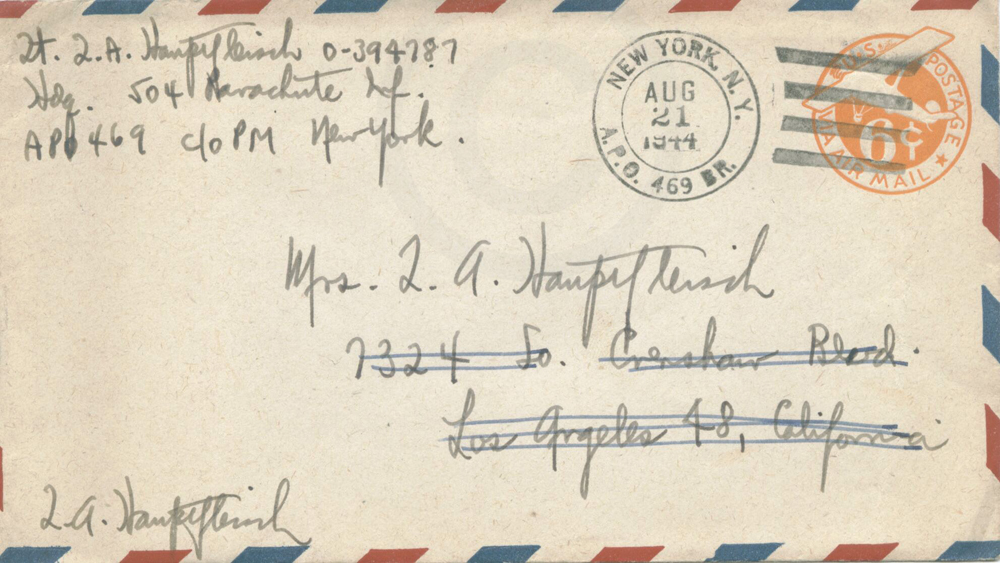 Lt. L.A. Hauptfleisch 0-394787
Hdq. 504 Parachute Inf.
APO 469 c/o PM New York.
NEW YORK, N.Y.
AUG
21
1944
A.P.O. 469 BR.
U.S. POSTAGE
6¢
VIA AIR MAIL
Mrs. L. A. Hauptfleisch
7324 So. Crenshaw Blvd.
Los Angeles 48, California
L.A. Hauptfleisch